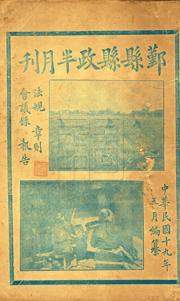 鄞縣縣政半月刊
法規 章則
會議錄 報告
中華民國十九年
五月編纂